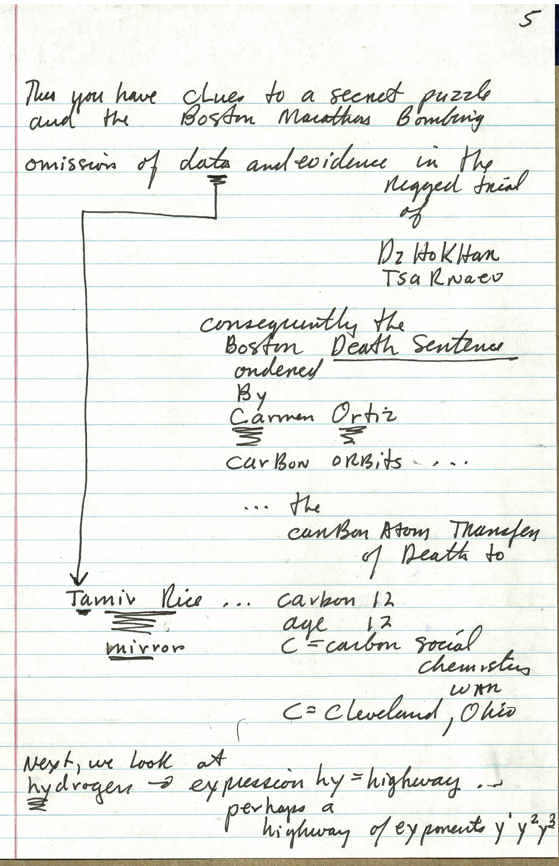 5
Thus you have clues to a secret puzzle
and the Boston Marathon Bombing
omission of data and evidence in the
rigged trial
of
DzHoKHan
TsaRnaev
consequently the
Boston Death Sentence
ordered
By
Carmen Ortiz
carBon ORBits ....
... the
carBon Atom Transfer
of Death to
Tamir Rice ... carbon 12
mirror
age 12
C = carbon social
chemistry
war
C = Cleveland, Ohio
Next, we look at
hydrogen → expression hy = highway ...
perhaps a
highway of exponents y¹ y² y³